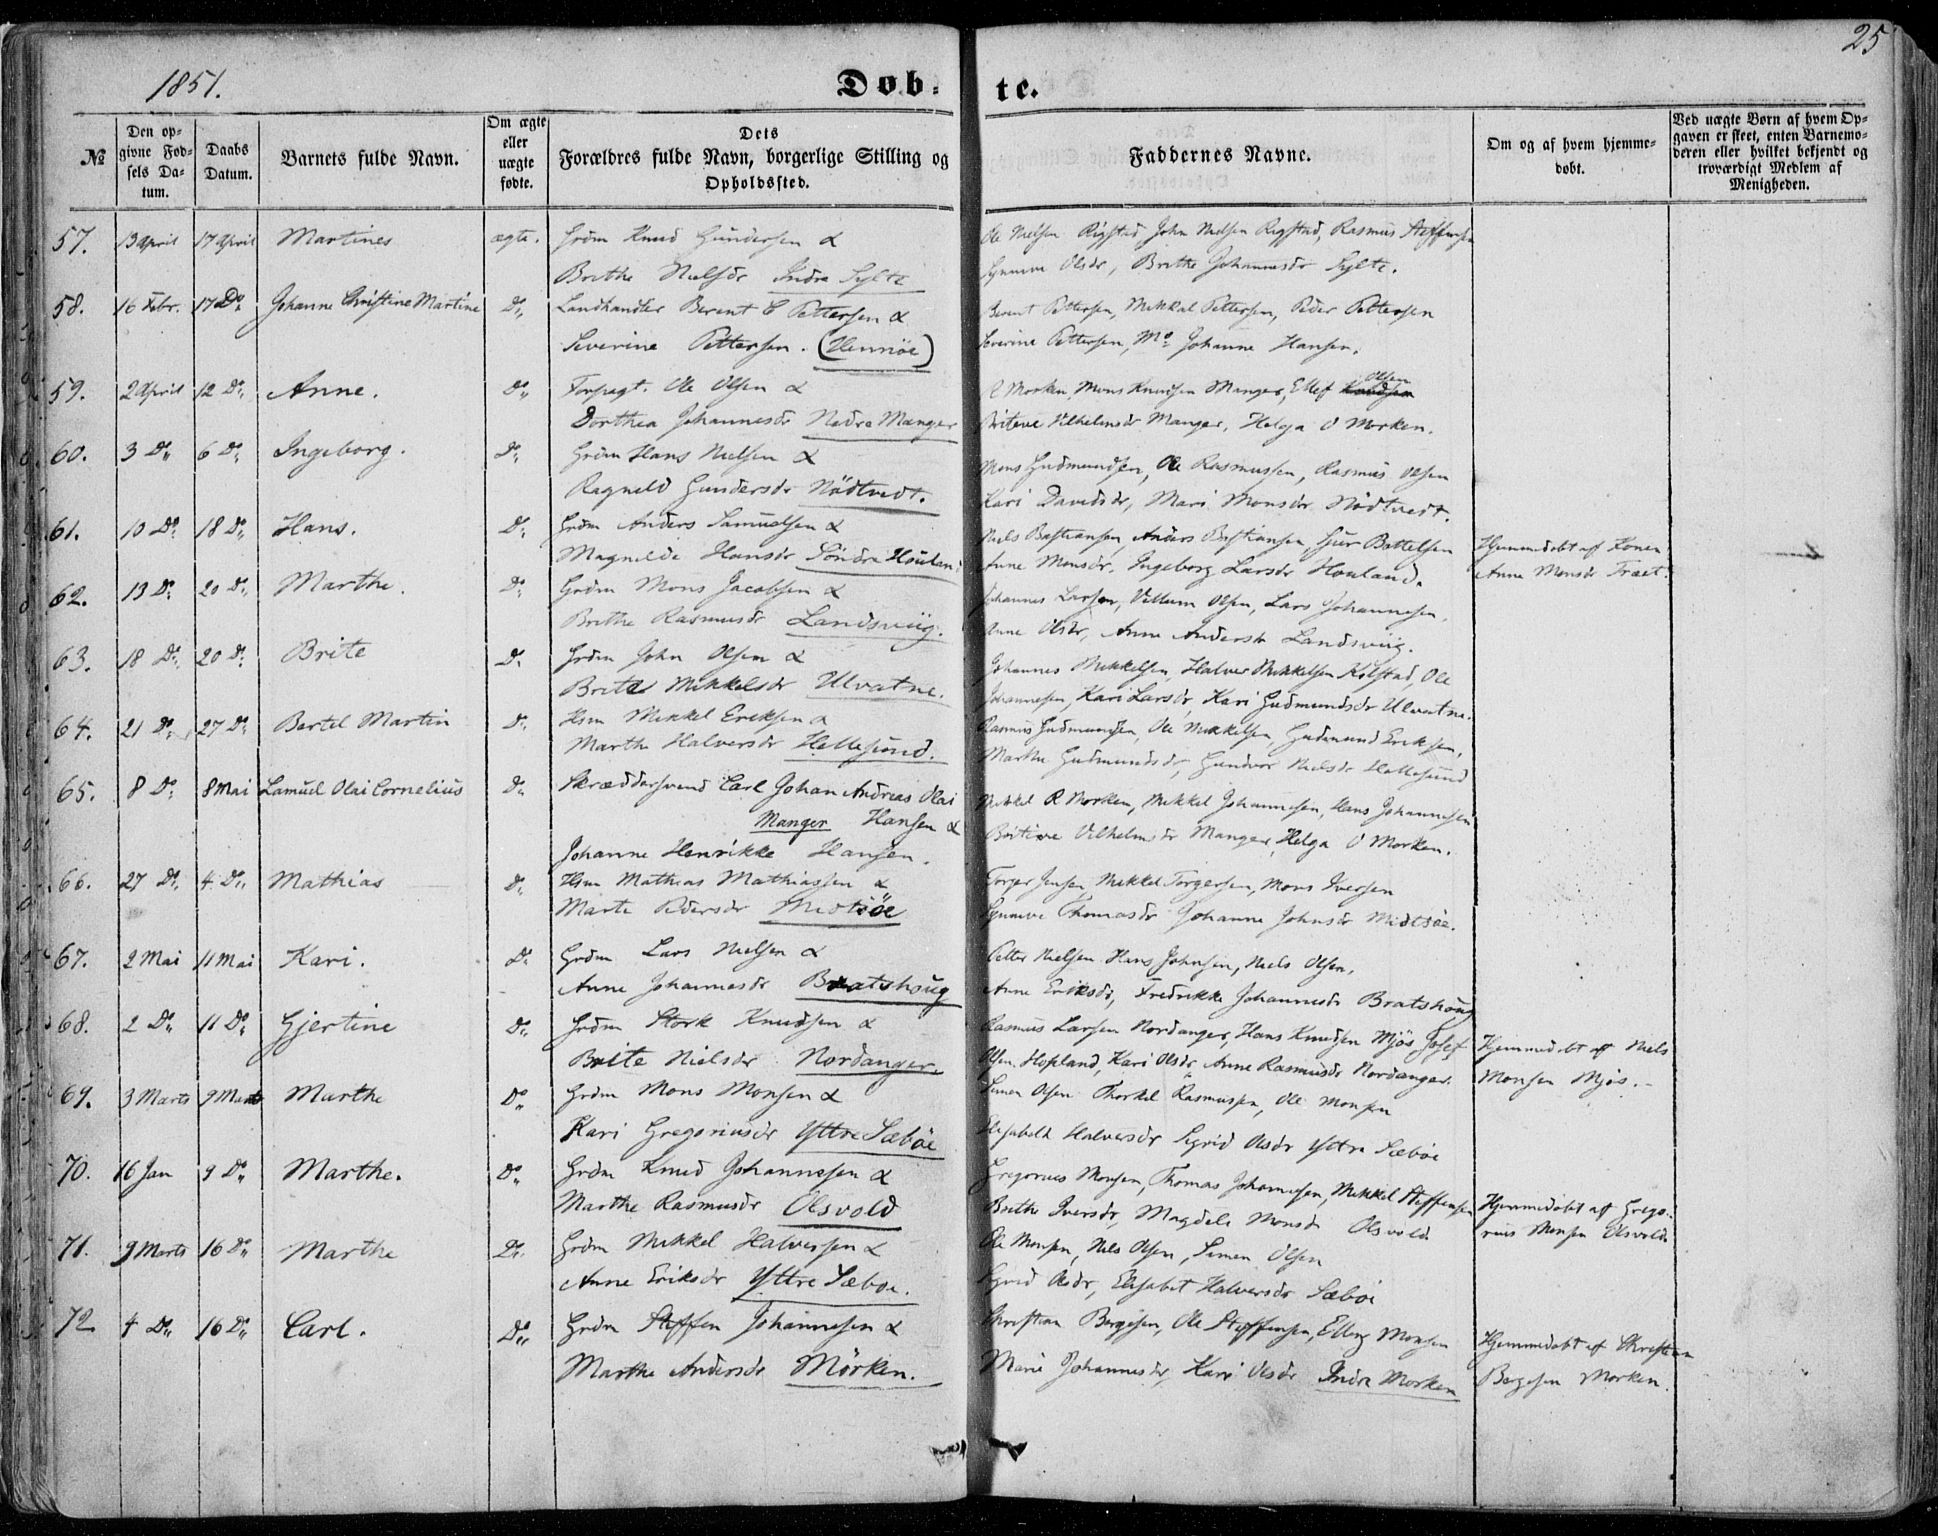 25
1851.
Døb-
te.
№
Den op-
givne Fød-
sels Da-
tum.
Daabs
Datum.
Barnets fulde Navn.
Om ægte
eller
uægte
fødte.
Dets
Forældres fulde Navn, borgerlige Stilling og
Opholdssted.
Faddernes Navne.
Om og af hvem hjemme-
døbt.
Ved uægte Børn af hvem Op-
gaven er skeet, enten Barnemo-
deren eller hvilket bekjendt og
troværdigt Medlem af
Menigheden.
57. 13 April 17 April Martines ægte. Grdm Knud Gundersen &
Brithe Nielsdr Indre Sylte
Ole Nielsen Rigstad John Nielsen Rigstad, Rasmus Steffensen
Synneve Olsdr, Brithe Johannesdr Sylte.
58. 16 Febr. 17 Do Johanne Christine Martine Do Landhandler Berent C Pettersen &
Severine Pettersen. (Hennöe)
Berent Pettersen, Mikkal Pettersen, Peder Pettersen
Severine Pettersen, Johanne Hansen.
59. 2 April 12 Do Anne. Do Forpagt. Ole Olsen &
Dorthea Johannesdr Nedre Manger
R Morken, Mons Knudsen Manger, Ellef Knudsen Olsen
Britewe Vilhelmsdr Manger, Helga O Morken.
60. 3 Do 6 Do Ingeborg. Do Grdm Hans Nielsen &
Ragneld Gundersdr Nödtvedt.
Mons Gudmundsen, Ole Rasmussen, Rasmus Olsen
Kari Davidsdr, Mari Monsdr Nödtvedt.
61. 10 Do 18 Do Hans. Do Grdm Anders Samuelsen &
Magnilde Hansdr Söndre Houland
Niels Bastiansen, Anders Bastiansen, Sjur Bottelsen
Anne Monsdr, Ingeborg Larsdr Houland.
Hjemmedöbt af Konen
Anne Monsdr Træt.
62. 13 Do 20 Do Marthe. Do Grdm Mons Jacobsen &
Brithe Rasmusdr Landsviig.
Johannes Larsen, Villum Olsen, Lars Johannesen,
Anne Olsdr, Anne Andersdr Landsviig.
63. 18 Do 20 Do Brite Do Grdm John Olsen &
Brite Mikkelsdr Ulvatne.
Johannes Mikkelsen, Halver Mikkelsen Kolstad, Ole
Johannesen, Kari Larsdr, Kari Gudmundsdr Ulvatne.
64. 21 Do 27 Do Bertel Martin Do Hsm Mikkel Eriksen &
Marthe Halversdr Hellesund.
Rasmus Gudmundsen, Ole Mikkelsen, Gudmund Eriksen,
Marthe Gudmundsdr, Gundvor Nielsdr Hellesund
65. 8 Do 8 Mai Samuel Olai Cornelius Do Skræddersvend Carl Johan Andreas Olai
Manger Hansen &
Johanne Henrikke Hansen.
Mikkel R Morken, Mikkel Johannesen, Hans Johannesen
Britewe Vilhelmsdr Manger, Helga O Morken.
66. 27 Do 4 Do Mathias Do Hsm Mathias Mathiassen &
Marte Pedersdr Midtöe
Torger Jensen, Mikkel Torgersen, Mons Iversen
Synneve Thomasdr Johanne Johnsdr Midtöe.
67. 2 Mai 11 Mai Kari. Do Grdm Lars Nielsen &
Anne Johannesdr Bratshoug
Petter Nielsen Hans Johnsen, Niels Olsen,
Anne Eriksdr, Fredrikke Johannesdr Bratshoug
68. 2 Do 11 Do Gjertine Do Grdm Stork Knudsen &
Brite Nielsdr Nordanger.
Rasmus Larsen Nordanger, Hans Knudsen Mjös, Josef
Olsen Hopland, Kari Olsdr, Anne Rasmusdr Nordanger.
Hjemmedöbt af Niels
Monsen Mjös.
69. 3 Marts 9 Marts Marthe Do Grdm Mons Monsen &
Kari Gregoriusdr Yttre Sæböe
Simen Olsen Thorkel Rasmussen, Ole Monsen
Elisabeth Halversdr Sigrid Olsdr Yttre Sæböe
70. 16 Jan 9 Do Marthe. Do Grdm Knud Johannessen &
Marthe Rasmusdr Olsvold
Gregorius Monsen, Thomas Johannesen, Mikkel Steffensen
Brithe Iversdr, Magdele Monsdr Olsvold
Hjemmedöbt af Grego-
rius Monsen Olsvold
71. 9 Marts 16 Do Marthe Do Grdm Mikkel Halversen &
Anne Eriksdr Yttre Sæboe.
Ole Monsen, Nils Olsen, Simen Olsen
Sigrid Olsdr, Elisabet Halversdr Sæböe
72 4 Do 16 Do Carl. Do Grdm Steffen Johannesen &
Marthe Andersdr Mörken.
Christian Börgesen, Ole Steffensen, Elling Monsen
Marie Johannesdr, Kari Olsdr Indre Morken
Hjemmedöbt af Christian
Börgesen Morken.